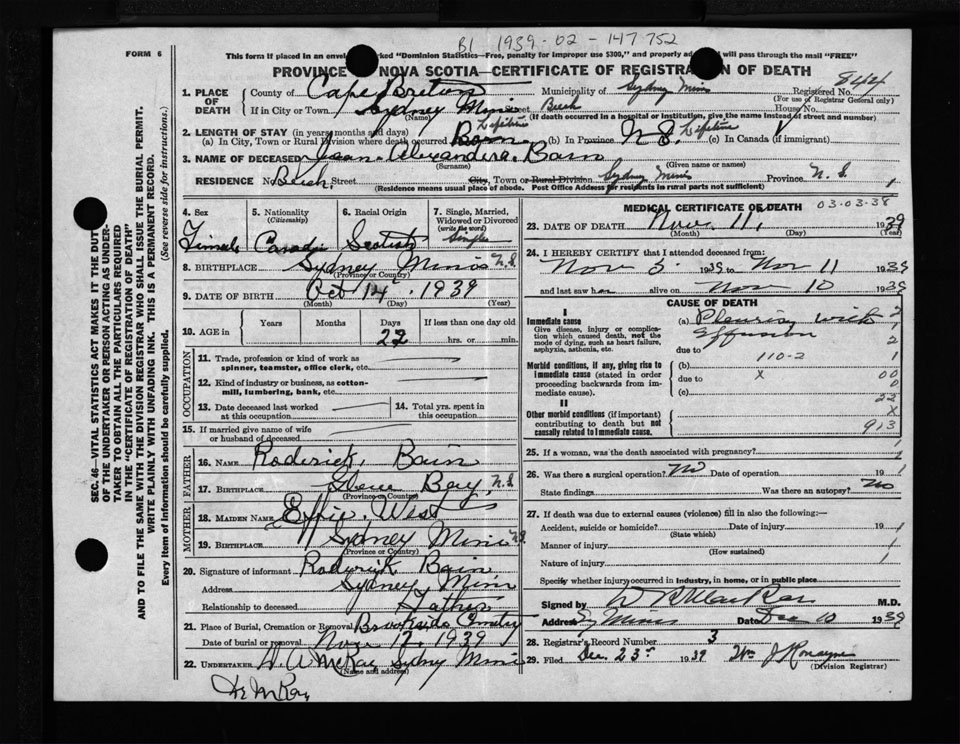 B1 1939-02-147752
FORM 6
This form if placed in an envel ked "Dominion Statistics—Free, penalty for improper use $300," and properly ad will pass through the mail "FREE"
PROVINCE NOVA SCOTIA—CERTIFICATE OF REGISTRATION OF DEATH
844
1. PLACE OF DEATH County of Cape Breton Municipality of Sydney Mines Registered No.
(For use of Registrar General only)
If in City or Town Sydney Mines Street Beech House No.
(Name) (If death occurred in a hospital or institution, give the name instead of street and number)
2. LENGTH OF STAY (in years, months and days)
(a) In City, Town or Rural Division where death occurred Born Lifetime (b) In Province N.S. Lifetime (c) In Canada (if immigrant)
3. NAME OF DECEASED Jean Alexandera Bain
(Surname) (Given name or names)
RESIDENCE No. Beech Street City, Town or Rural Division Sydney Mines Province N.S.
(Residence means usual place of abode. Post Office Address for residents in rural parts not sufficient)
4. Sex Female
5. Nationality (Citizenship) Canadin
6. Racial Origin Scotish
7. Single, Married, Widowed or Divorced (write the word) Single
8. BIRTHPLACE Sydney Mines N.S.
(Province or Country)
9. DATE OF BIRTH Oct 14 1939
(Month) (Day) (Year)
10. AGE in Years Months Days If less than one day old
27 hrs. or min.
OCCUPATION
11. Trade, profession or kind of work as spinner, teamster, office clerk, etc.
12. Kind of industry or business, as cotton-mill, lumbering, bank, etc.
13. Date deceased last worked at this occupation
14. Total yrs. spent in this occupation
15. If married give name of wife or husband of deceased
FATHER
16. NAME Roderick Bain
17. BIRTHPLACE Bay, N.S.
(Province or Country)
MOTHER
18. MAIDEN NAME Effie West
19. BIRTHPLACE Sydney Mines N.S.
(Province or Country)
20. Signature of informant Roderick Bain
Address Sydney Mines
Relationship to deceased Father
21. Place of Burial, Cremation or Removal Brookside Cemetery
Date of burial or removal Nov. 12, 1939
22. UNDERTAKER W. A. McKay Sydney Mines
(Name and address)
McKay
MEDICAL CERTIFICATE OF DEATH
03-03-38
23. DATE OF DEATH Nov. 11, 1939
(Month) (Day)
24. I HEREBY CERTIFY that I attended deceased from:
Nov 5 1939 to Nov 11 1939
and last saw her alive on Nov 10 1939
CAUSE OF DEATH
I
Immediate cause (a) Pleuris with Effusion
Give disease, injury or complication which caused death, not the mode of dying, such as heart failure, asphyxia, asthenia, etc.
due to
110-2
Morbid conditions, if any, giving rise to immediate cause (stated in order proceeding backwards from immediate cause). (b)
due to x
(c)
II
Other morbid conditions (if important) contributing to death but not causally related to immediate cause.
2
1
2
1
00
0
22
x
913
25. If a woman, was the death associated with pregnancy?
26. Was there a surgical operation? No Date of operation 19
State findings Was there an autopsy? No
27. If death was due to external causes (violence) fill in also the following:—
Accident, suicide or homicide? Date of injury 19
(State which)
Manner of injury
(How sustained)
Nature of injury
Specify whether injury occurred in industry, in home, or in public place
Signed by M.D.
Address Sy Mines Date Dec 10 1939
28. Registrar's Record Number 3
29. Filed Dec. 23rd 1939 Wm J Ronayne
(Division Registrar)
SEC. 46—VITAL STATISTICS ACT MAKES IT THE DUTY
OF THE UNDERTAKER OR PERSON ACTING AS UNDER-
TAKER TO OBTAIN ALL THE PARTICULARS REQUIRED
IN THE "CERTIFICATE OF REGISTRATION OF DEATH"
AND TO FILE THE SAME WITH THE DIVISION REGISTRAR WHO SHALL ISSUE THE BURIAL PERMIT.
WRITE PLAINLY WITH UNFADING INK. THIS IS A PERMANENT RECORD.
Every item of information should be carefully supplied. (See reverse side for instructions.)